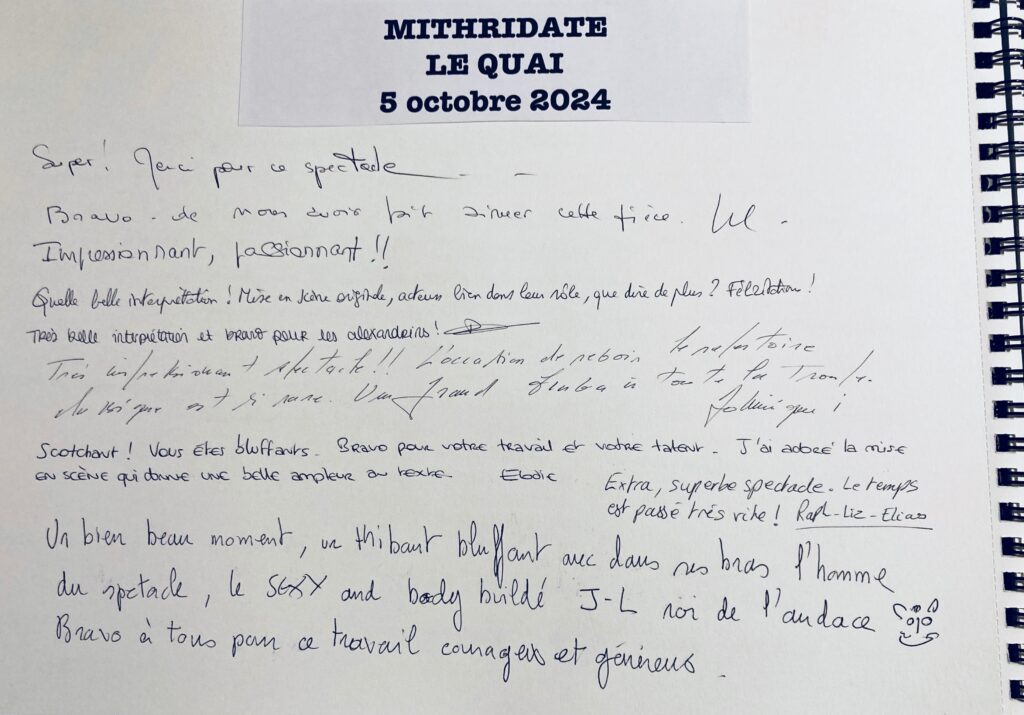 MITHRIDATE
LE QUAI
5 octobre 2024
Super ! Merci pour ce spectacle
Bravo - de nous avoir fait aimer cette pièce.
Impressionnant, passionnant !!
Quelle belle interprétation ! Mise en scène originale, acteurs bien dans leur rôle, que dire de plus ? Félicitation !
Très belle interprétation et bravo pour les alexandrins !
Très impressionnant spectacle !! L'occasion de revoir le repertoire
classique est si rare. Un grand à toute la Troupe.
Dominique !
Scotchant ! Vous êtes bluffants. Bravo pour votre travail et votre talent. J'ai adoré la mise
en scène qui donne une belle ampleur au texte. Elodie
Extra, superbe spectacle. Le temps
est passé très vite ! Raph-Liz-Elias
Un bien beau moment, un thibaut bluffant avec dans ses bras l'homme
du spectacle, le SEXY and body buildé J-L roi de l'audace
Bravo à tous pour ce travail courageux et généreux.